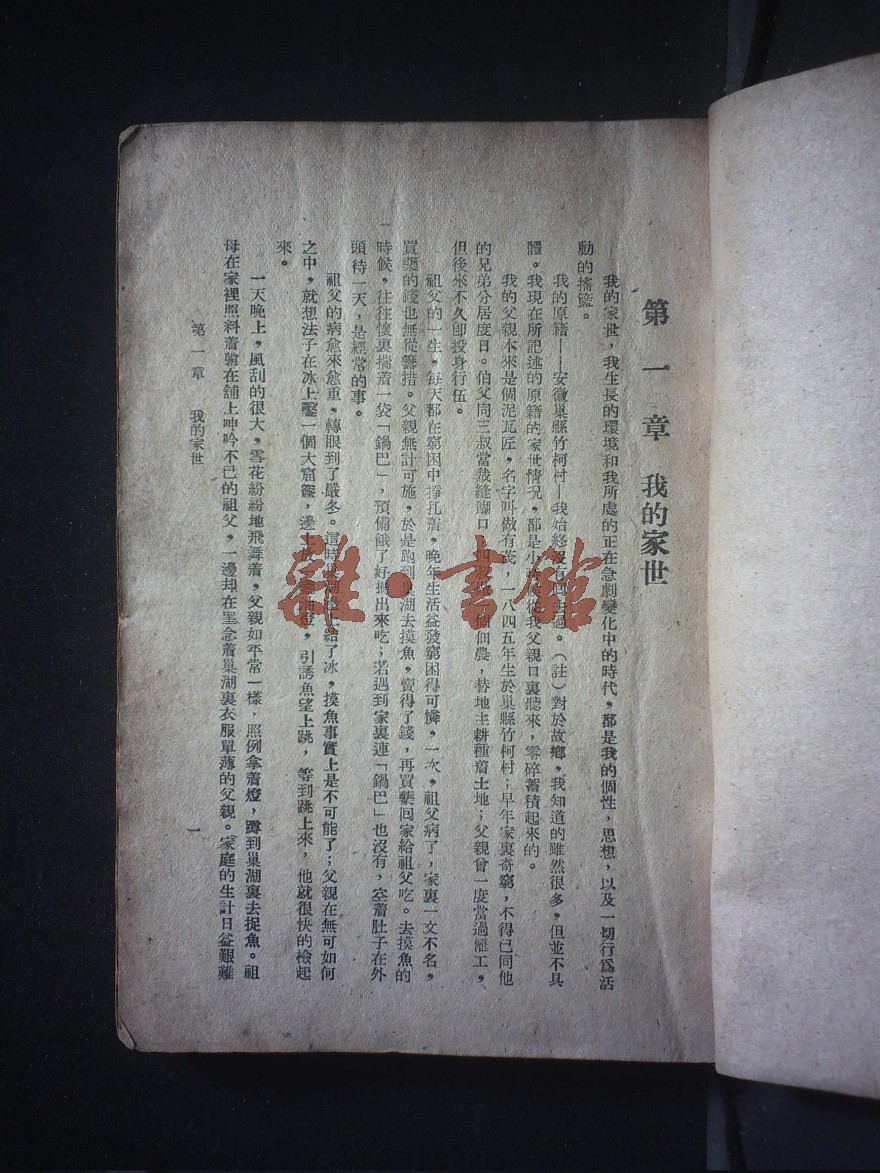 第一章　我的家世
我的家世，我生長的環境和我所處的正在急劇變化中的時代，都是我的個性，思想，以及一切行為活
動的搖籃。
我的原籍——安徽巢縣竹柯村—我始終沒有回去過。（註）對於故鄉，我知道的雖然很多，但並不具
體。我現在所記述的原籍的家世情況，都是小時候從我父親口裏聽來，零碎蓄積起來的。
我的父親本來是個泥瓦匠，名字叫做有茂，一八四五年生於巢縣竹柯村；早年家裏奇窮，不得已同他
的兄弟分居度日。伯父同三叔當裁縫餬口，四叔 個佃農，替地主耕種着土地；父親曾一度當過僱工，
但後來不久卽投身行伍。
祖父的一生，每天都在窮困中掙扎着，晚年生活益發窮困得可憐，一次，祖父病了，家裏一文不名，
買藥的錢也無從籌措。父親無計可施，於是跑到巢湖去摸魚，賣得了錢，再買藥回家給祖父吃。去摸魚的
時候，往往懷裏揣着一袋「鍋巴」，預備餓了好掏出來吃；若遇到家裏連「鍋巴」也沒有，空着肚子在外
頭待一天，是經常的事。
祖父的病愈來愈重，轉眼到了嚴冬。這時巢湖 結了冰，摸魚事實上是不可能了；父親在無可如何
之中，就想法子在冰上鑿一個大窟窿，邊上放 油燈，引誘魚望上跳，等到跳上來，他就很快的檢起
來。
一天晚上，風刮的很大，雪花紛紛地飛舞着，父親如平常一樣，照例拿着燈，蹲到巢湖裏去捉魚。祖
母在家裡照料着躺在舖上呻吟不已的祖父，一邊却在罣念着巢湖裏衣服單薄的父親。家庭的生計日益艱難
第一章　我的家世
一
雜·書館